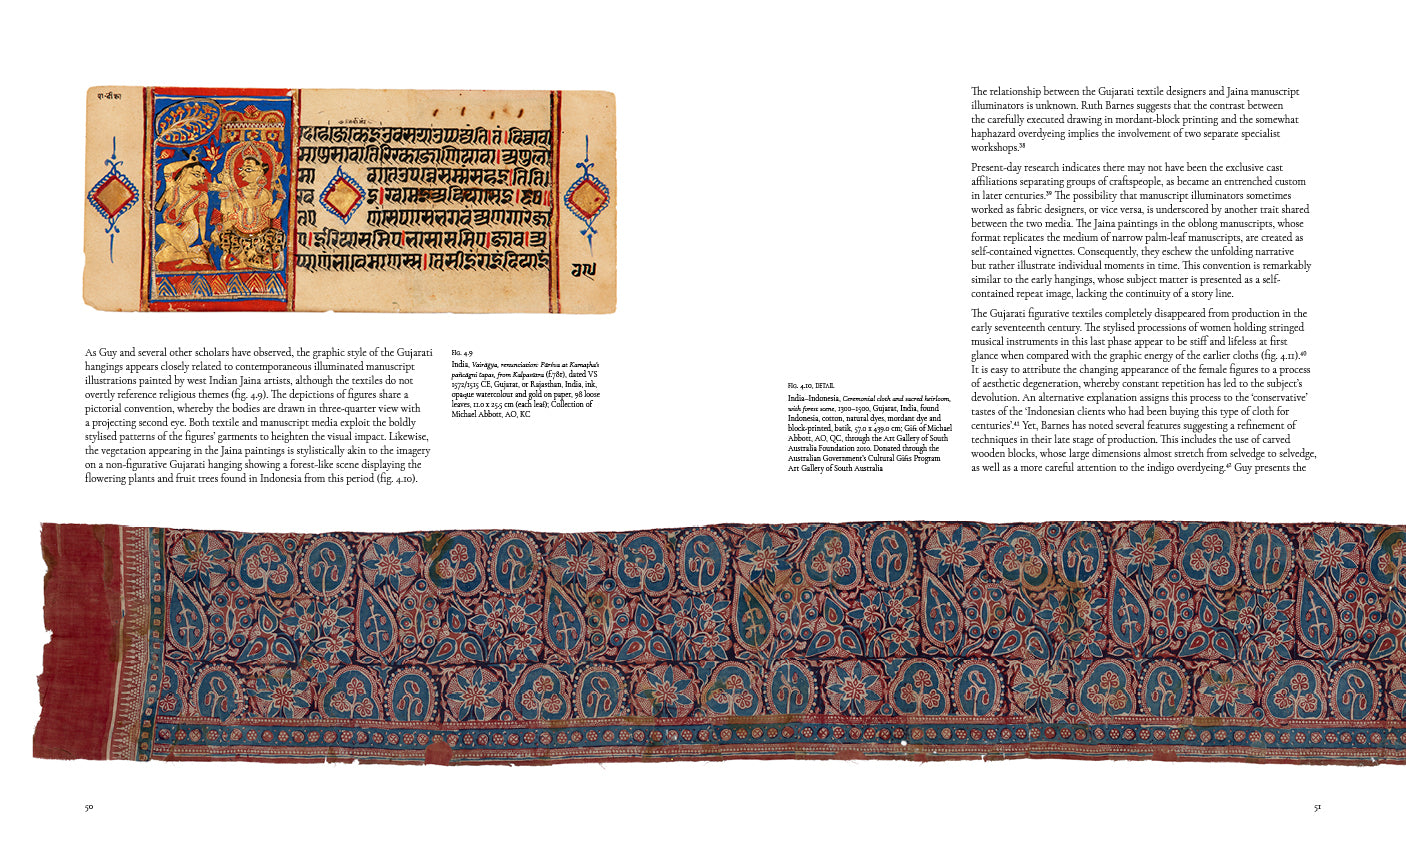 As Guy and several other scholars have observed, the graphic style of the Gujarati
hangings appears closely related to contemporaneous illuminated manuscript
illustrations painted by west Indian Jaina artists, although the textiles do not
overtly reference religious themes (fig. 4.9). The depictions of figures share a
pictorial convention, whereby the bodies are drawn in three-quarter view with
a projecting second eye. Both textile and manuscript media exploit the boldly
stylised patterns of the figures' garments to heighten the visual impact. Likewise,
the vegetation appearing in the Jaina paintings is stylistically akin to the imagery
on a non-figurative Gujarati hanging showing a forest-like scene displaying the
flowering plants and fruit trees found in Indonesia from this period (fig. 4.10).
FIG. 4.9
India, Vairāgya, renunciation: Pārśva at Kamaṭha's
pañcāgni tapas, from Kalpasūtra (f.78r), dated VS
1572/1515 CE, Gujarat, or Rajasthan, India, ink,
opaque watercolour and gold on paper, 98 loose
leaves, 11.0 x 25.5 cm (each leaf); Collection of
Michael Abbott, AO, KC
FIG. 4.10, DETAIL
India–Indonesia, Ceremonial cloth and sacred heirloom,
with forest scene, 1300–1500, Gujarat, India, found
Indonesia, cotton, natural dyes, mordant dye and
block-printed, batik, 57.0 x 439.0 cm; Gift of Michael
Abbott, AO, QC, through the Art Gallery of South
Australia Foundation 2010. Donated through the
Australian Government's Cultural Gifts Program
Art Gallery of South Australia
The relationship between the Gujarati textile designers and Jaina manuscript
illuminators is unknown. Ruth Barnes suggests that the contrast between
the carefully executed drawing in mordant-block printing and the somewhat
haphazard overdyeing implies the involvement of two separate specialist
workshops.³⁸
Present-day research indicates there may not have been the exclusive cast
affiliations separating groups of craftspeople, as became an entrenched custom
in later centuries.³⁹ The possibility that manuscript illuminators sometimes
worked as fabric designers, or vice versa, is underscored by another trait shared
between the two media. The Jaina paintings in the oblong manuscripts, whose
format replicates the medium of narrow palm-leaf manuscripts, are created as
self-contained vignettes. Consequently, they eschew the unfolding narrative
but rather illustrate individual moments in time. This convention is remarkably
similar to the early hangings, whose subject matter is presented as a self-
contained repeat image, lacking the continuity of a story line.
The Gujarati figurative textiles completely disappeared from production in the
early seventeenth century. The stylised processions of women holding stringed
musical instruments in this last phase appear to be stiff and lifeless at first
glance when compared with the graphic energy of the earlier cloths (fig. 4.11).⁴⁰
It is easy to attribute the changing appearance of the female figures to a process
of aesthetic degeneration, whereby constant repetition has led to the subject's
devolution. An alternative explanation assigns this process to the 'conservative'
tastes of the 'Indonesian clients who had been buying this type of cloth for
centuries'.⁴¹ Yet, Barnes has noted several features suggesting a refinement of
techniques in their late stage of production. This includes the use of carved
wooden blocks, whose large dimensions almost stretch from selvedge to selvedge,
as well as a more careful attention to the indigo overdyeing.⁴² Guy presents the
50
51